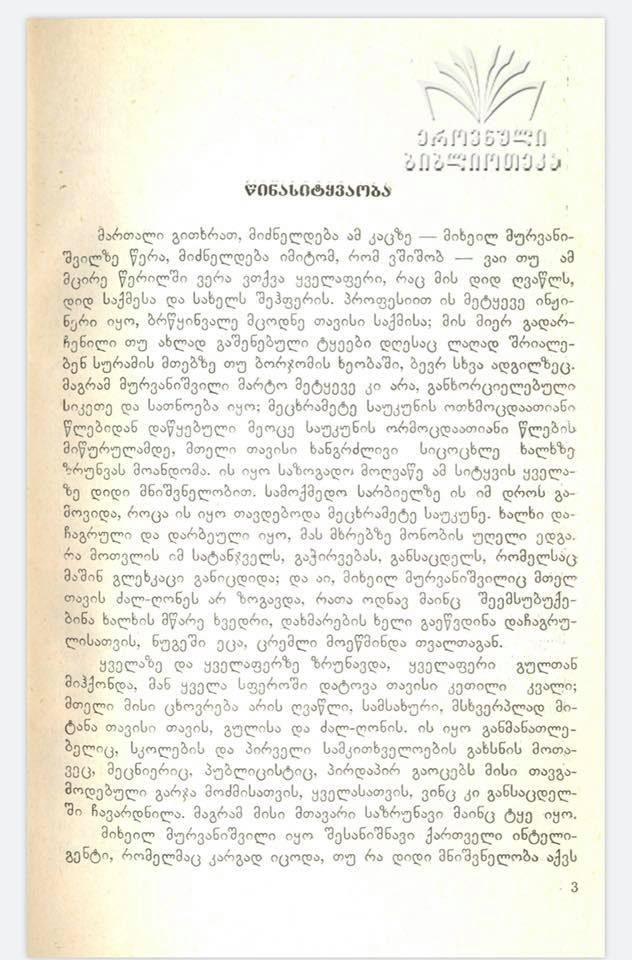 ეროვნული
ბიბლიოთეკა
წინასიტყვაობა
მართალი გითხრათ, მიძნელდება ამ კაცზე — მიხეილ მურვანი-
შვილზე წერა, მიძნელდება იმიტომ, რომ ვშიშობ — ვაი თუ ამ
მცირე წერილში ვერა ვთქვა ყველაფერი, რაც მის დიდ ღვაწლს,
დიდ საქმესა და სახელს შეჰფერის. პროფესიით ის მეტყევე ინჟი-
ნერი იყო, ბრწყინვალე მცოდნე თავისი საქმისა; მის მიერ გადარ-
ჩენილი თუ ახლად გაშენებული ტყეები დღესაც ლაღად შრიალე-
ბენ სურამის მთებზე თუ ბორჯომის ხეობაში, ბევრ სხვა ადგილზეც.
მაგრამ მურვანიშვილი მარტო მეტყევე კი არა, განხორციელებული
სიკეთე და სათნოება იყო; მეცხრამეტე საუკუნის ოთხმოცდაათიანი
წლებიდან დაწყებული მეოცე საუკუნის ორმოცდაათიანი წლების
მიწურულამდე, მთელი თავისი ხანგრძლივი სიცოცხლე ხალხზე
ზრუნვას მოანდომა. ის იყო საზოგადო მოღვაწე ამ სიტყვის ყველა-
ზე დიდი მნიშვნელობით. სამოქმედო სარბიელზე ის იმ დროს გა-
მოვიდა, როცა ის იყო თავდებოდა მეცხრამეტე საუკუნე. ხალხი და-
ჩაგრული და დარბეული იყო, მას მხრებზე მონობის უღელი ედგა.
რა მოთვლის იმ სატანჯველს, გაჭირვებას, განსაცდელს, რომელსაც
მაშინ გლეხკაცი განიცდიდა; და აი, მიხეილ მურვანიშვილიც მთელ
თავის ძალ-ღონეს არ ზოგავდა, რათა ოდნავ მაინც შეემსუბუქე-
ბინა ხალხის მწარე ხვედრი, დახმარების ხელი გაეწვდინა დაჩაგრუ-
ლისათვის, ნუგეში ეცა, ცრემლი მოეწმინდა თვალთაგან.
ყველაზე და ყველაფერზე ზრუნავდა, ყველაფერი გულთან
მიჰქონდა, მან ყველა სფეროში დატოვა თავისი კეთილი კვალი;
მთელი მისი ცხოვრება არის ღვაწლი, სამსახური, მსხვერპლად მი-
ტანა თავისი თავის, გულისა და ძალ-ღონის. ის იყო განმანათლე-
ბელიც, სკოლების და პირველი სამკითხველოების გახსნის მოთა-
ვეც, მეცნიერიც, პუბლიცისტიც, პირდაპირ გაოცებს მისი თავგა-
მოდებული გარჯა მოძმისათვის, ყველასათვის, ვინც კი განსაცდელ-
ში ჩავარდნილა. მაგრამ მისი მთავარი საზრუნავი მაინც ტყე იყო.
მიხეილ მურვანიშვილი იყო შესანიშნავი ქართველი ინტელი-
გენტი, რომელმაც კარგად იცოდა, თუ რა დიდი მნიშვნელობა აქვს
3